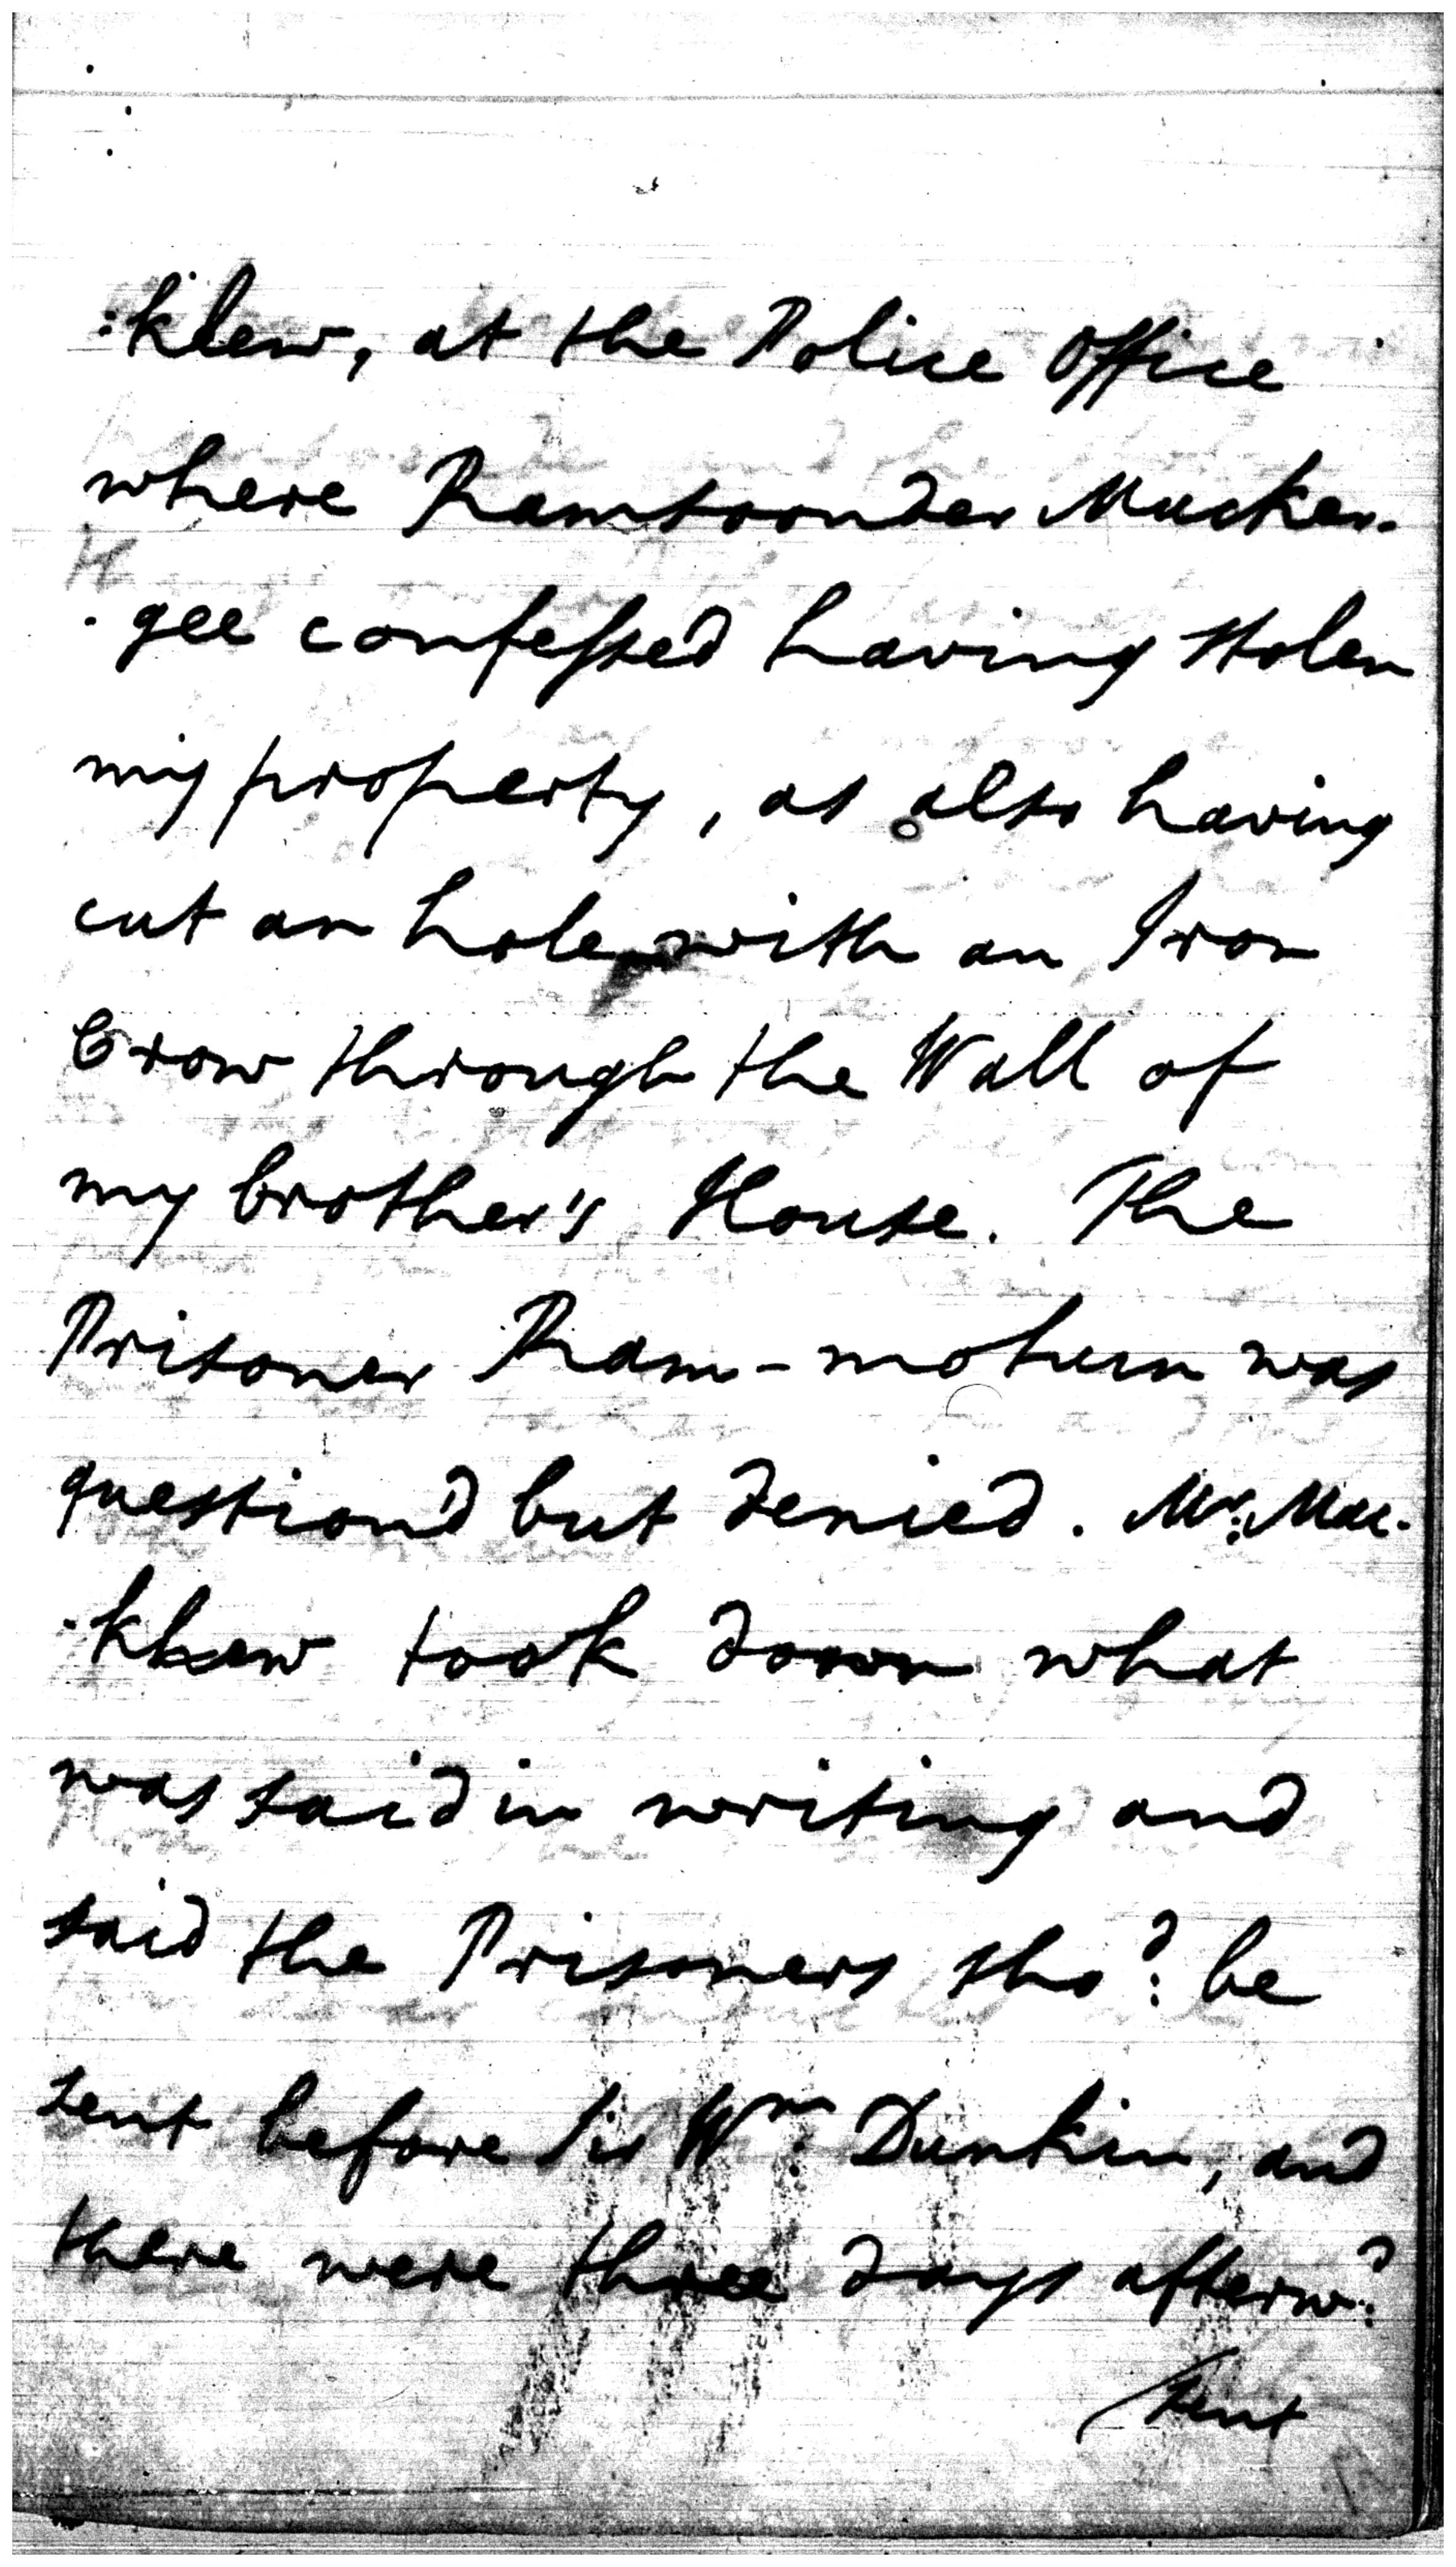 :klew, at the Police Office
where Ramsoonder Mucker-
-gee confessed having stolen
my property, as also having
cut an hole with an Iron
Crow through the Wall of
my brother's House. The
Prisoner Ram-mohun was
question'd but denied. Mr: Mac-
-klew took down what
was said in writing and
said the Prisoners sho:d be
sent before Sir Wm. Dunkin, and
there were three days afterw:d
sent